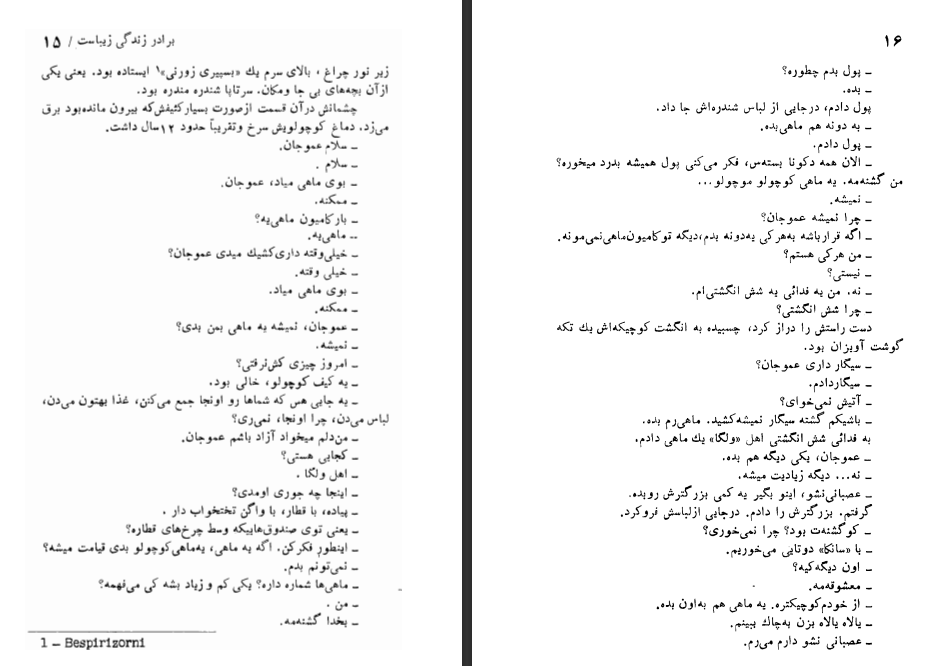 برادر زندگی زیباست / ۱۵
زیر نور چراغ ، بالای سرم یك «بسپیری زورنی»۱ ایستاده بود. یعنی یکی
از آن بچه‌های بی جا ومکان. سرتاپا شندره مندره بود.
چشمانش درآن قسمت ازصورت بسیارکثیفش‌که بیرون مانده‌بود برق
می‌زد. دماغ کوچولویش سرخ وتقریباً حدود ۱۲سال داشت.
ـ سلام عموجان.
ـ سلام .
ـ بوی ماهی میاد، عموجان.
ـ ممکنه.
ـ بارکامیون ماهی‌یه؟
ـ ماهی‌یه.
ـ خیلی‌وقته داری‌کشیك میدی عموجان؟
ـ خیلی وقته.
ـ بوی ماهی میاد.
ـ ممکنه.
ـ عموجان، نمیشه یه ماهی بمن بدی؟
ـ نمیشه.
ـ امروز چیزی کش‌نرفتی؟
ـ یه کیف کوچولو، خالی بود.
ـ یه جایی هس که شماها رو اونجا جمع می‌کنن، غذا بهتون می‌دن،
لباس می‌دن، چرا اونجا، نمی‌ری؟
ـ من‌دلم میخواد آزاد باشم عموجان.
ـ کجایی هستی؟
ـ اهل ولگا .
ـ اینجا چه جوری اومدی؟
ـ پیاده، با قطار، با واگن تختخواب دار .
ـ یعنی توی صندوق‌هاییکه وسط چرخ‌های قطاره؟
ـ اینطور فکرکن. اگه یه ماهی، یه‌ماهی‌کوچولو بدی قیامت میشه؟
ـ نمی‌تونم بدم.
ـ ماهی‌ها شماره داره؟ یکی کم و زیاد بشه کی می‌فهمه؟
ـ من .
ـ بخدا گشنه‌مه.
1 – Bespirizorni
۱۶
ـ پول بدم چطوره؟
ـ بده.
پول دادم، درجایی از لباس شندره‌اش جا داد.
ـ یه دونه هم ماهی‌بده.
ـ پول دادم.
ـ الان همه دکونا بسته‌س، فکر می‌کنی پول همیشه بدرد میخوره؟
من گشنه‌مه. یه ماهی کوچولو موچولو...
ـ نمیشه.
ـ چرا نمیشه عموجان؟
ـ اگه قرارباشه به‌هرکی یه‌دونه بدم،دیگه توکامیون‌ماهی‌نمی‌مونه.
ـ من هرکی هستم؟
ـ نیستی؟
ـ نه. من یه فدائی یه شش انگشتی‌ام.
ـ چرا شش انگشتی؟
دست راستش را دراز کرد، چسبیده به انگشت کوچیکه‌اش یك تکه
گوشت آویزان بود.
ـ سیگار داری عموجان؟
ـ سیگاردادم.
ـ آتیش نمی‌خوای؟
ـ باشیکم گشنه سیگار نمیشه‌کشید. ماهی‌رم بده.
به فدائی شش انگشتی اهل «ولگا» یك ماهی دادم.
ـ عموجان، یکی دیگه هم بده.
ـ نه... دیگه زیادیت میشه.
ـ عصبانی‌نشو، اینو بگیر یه کمی بزرگترش روبده.
گرفتم. بزرگترش را دادم. درجایی ازلباسش فروکرد.
ـ کو گشنه‌ت بود؟ چرا نمی‌خوری؟
ـ با «سانکا» دوتایی می‌خوریم.
ـ اون دیگه‌کیه؟
ـ معشوقه‌مه.
ـ از خودم‌کوچیکتره. یه ماهی هم به‌اون بده.
ـ یالاه یالاه بزن به‌چاك ببینم.
ـ عصبانی نشو دارم می‌رم.